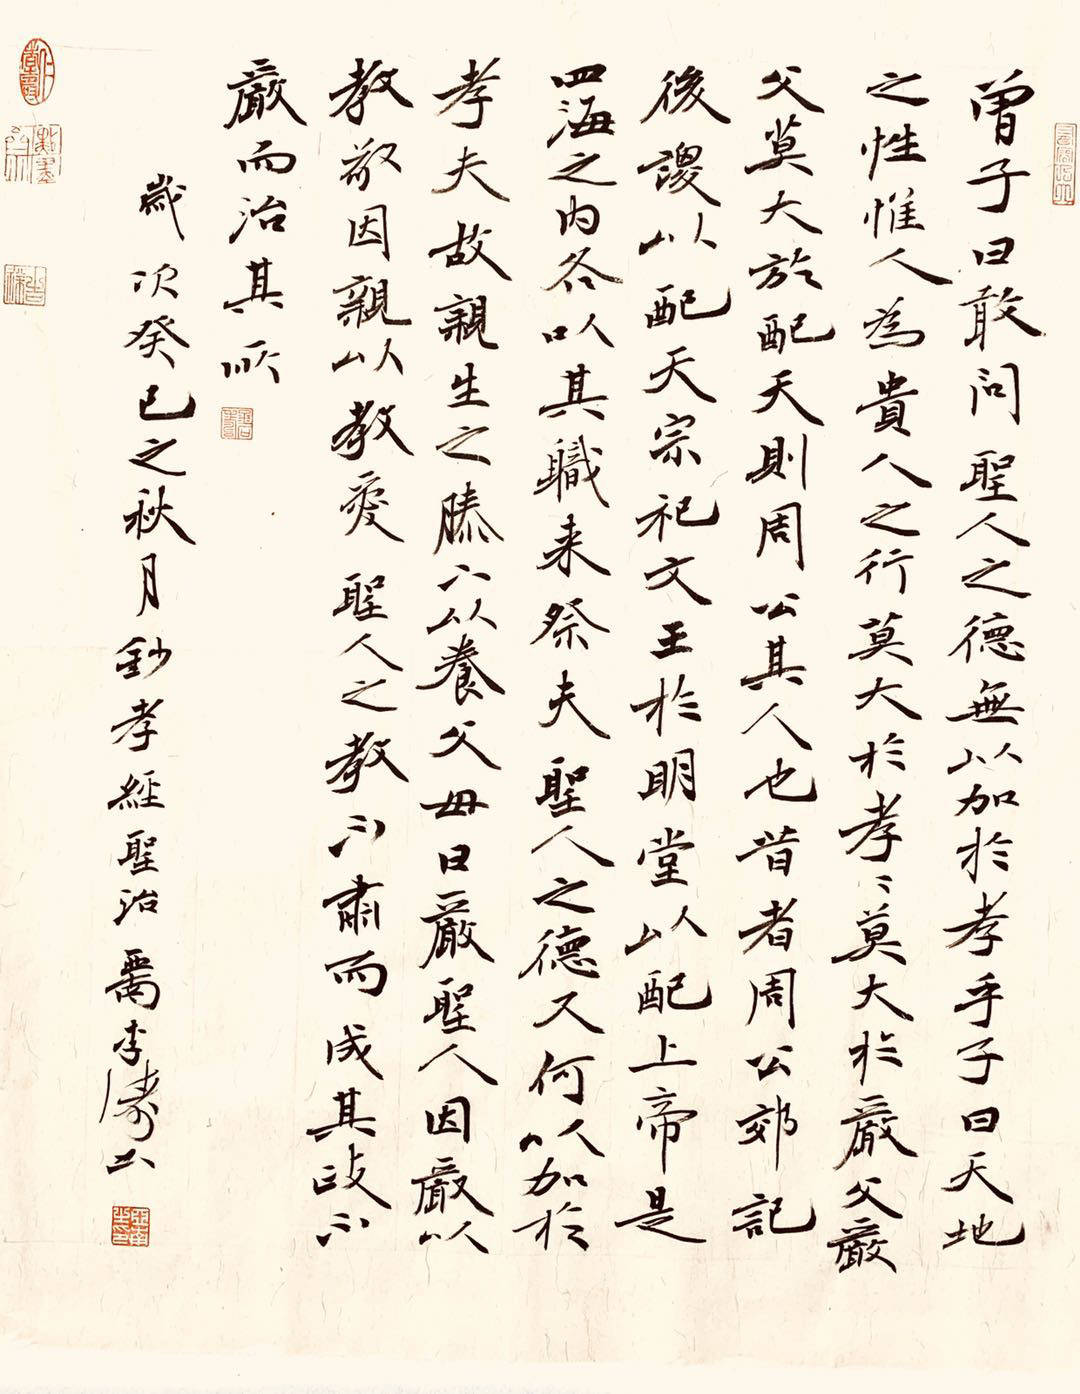 曾子曰敢問聖人之德無以加於孝乎子曰天地
之性惟人為貴人之行莫大於孝〻莫大於嚴父嚴
父莫大於配天則周公其人也昔者周公郊記
後謖以配天宗祀文王於明堂以配上帝是
四海之内各以其職来祭夫聖人之德又何以加於
孝夫故親生之膝下以養父母日嚴聖人因嚴以
教敬因親以教愛聖人之教不肅而成其政不
嚴而治其所
歲次癸巳之秋月鈔孝經聖治李